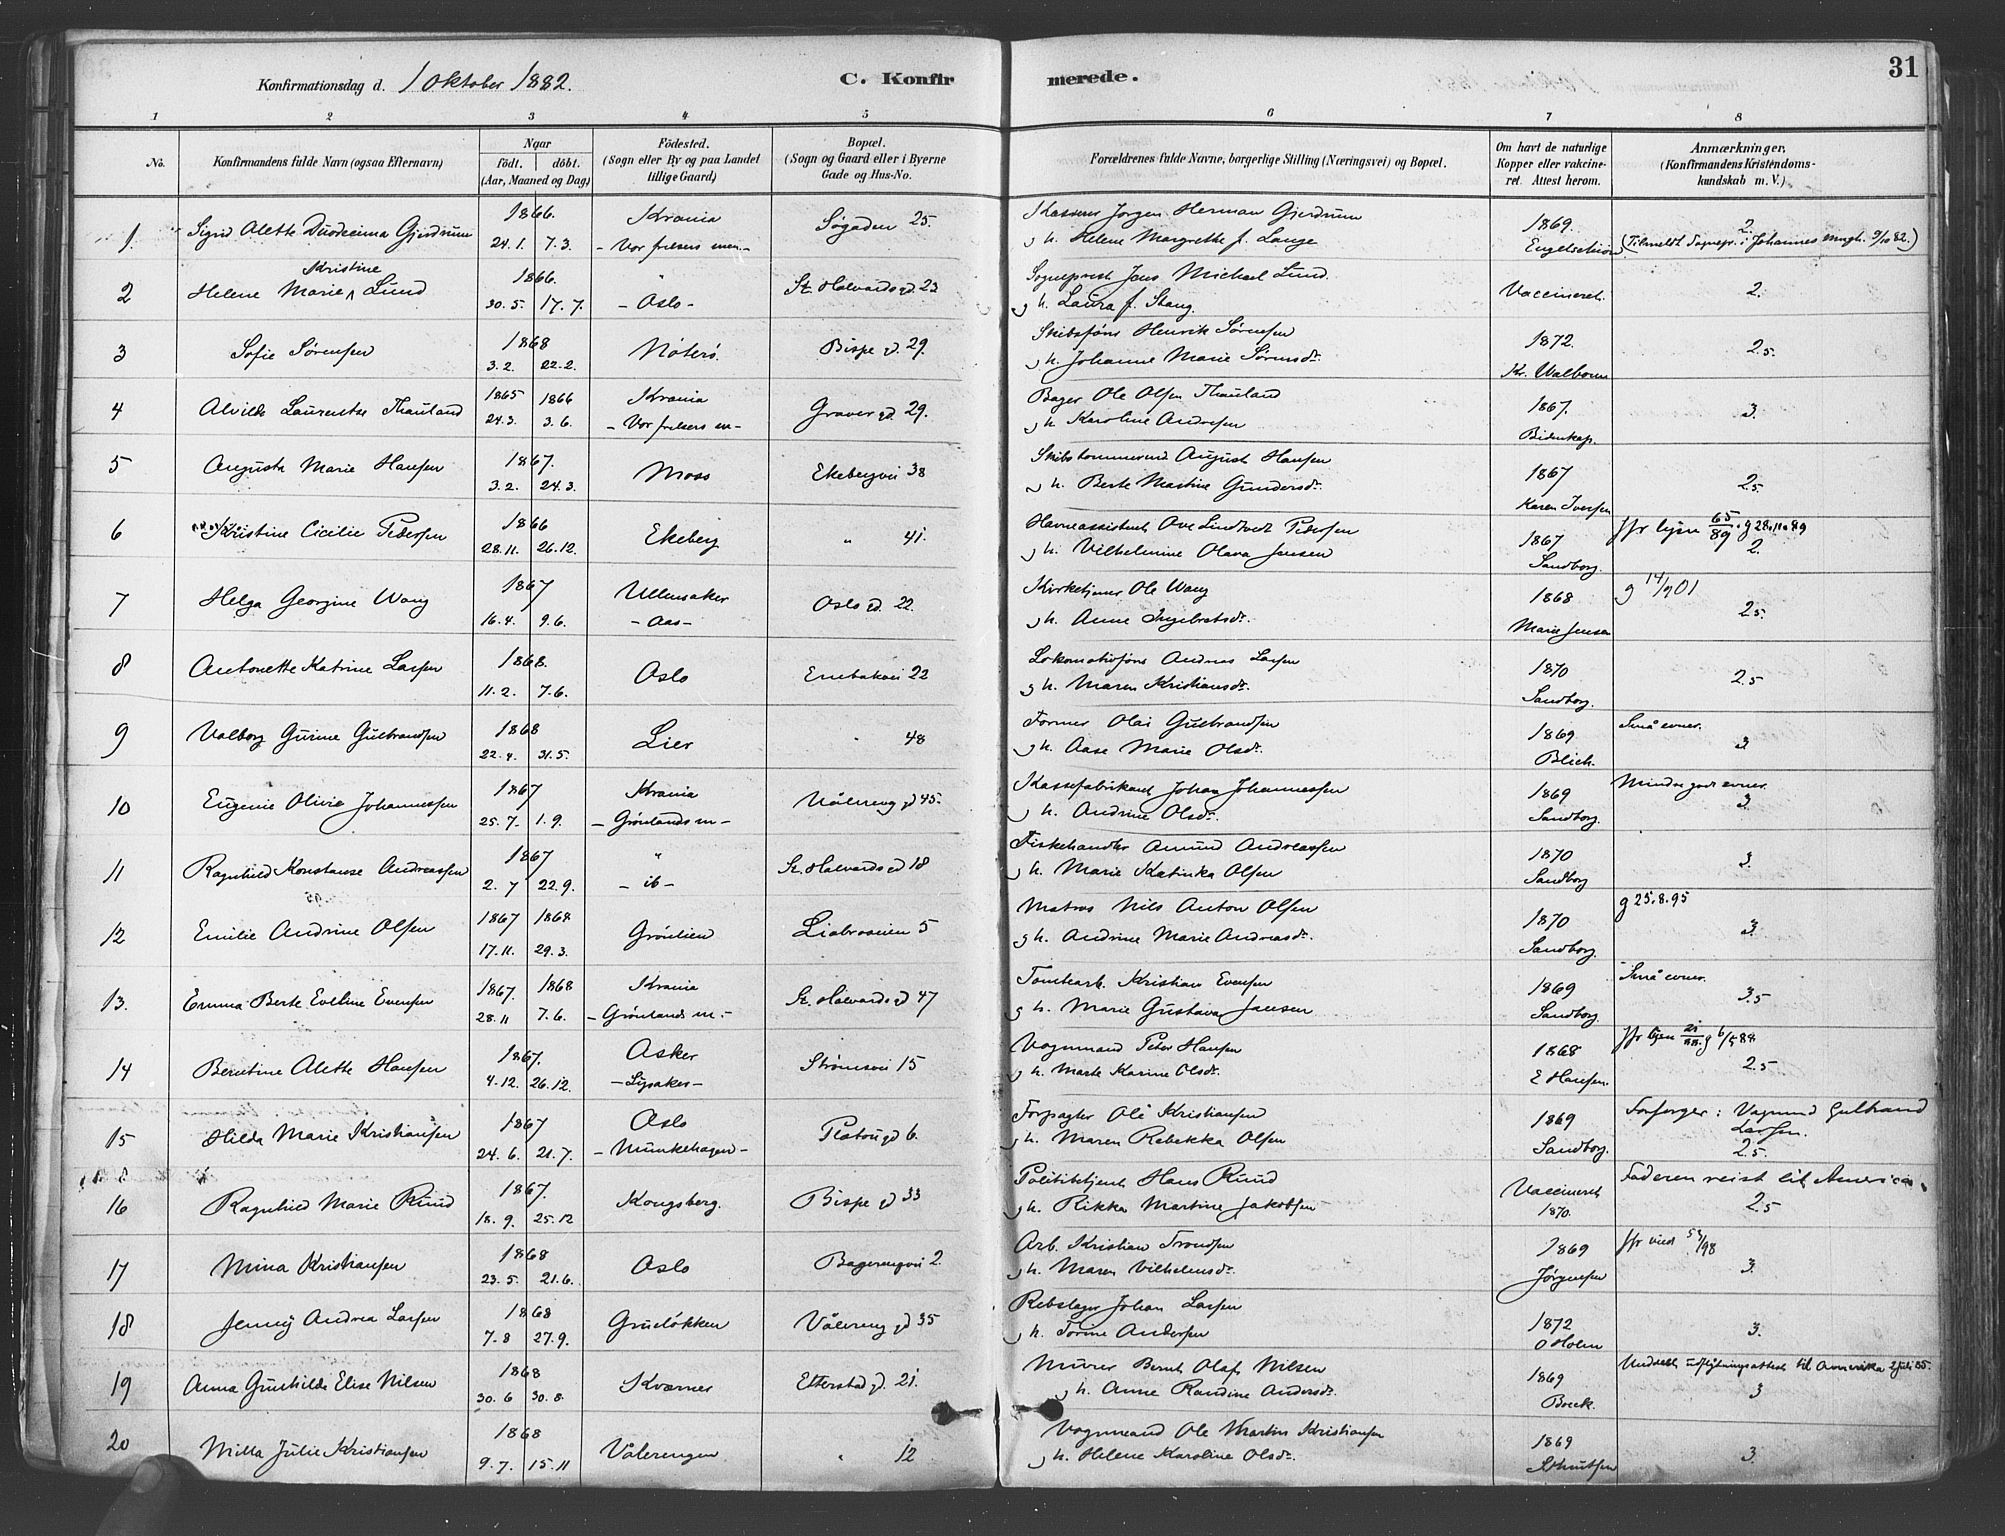 Konfirmationsdag d. 1 Oktober 1882.
C. Konfirmerede.
31
1 2 3 4 5 6 7 8
No.
Konfirmandens fulde Navn (ogsaa Efternavn)
Naar
födt. döbt.
(Aar, Maaned og Dag)
Födested.
(Sogn eller By og paa Landet
tillige Gaard)
Bopæl.
(Sogn og Gaard eller i Byerne
Gade og Hus-No.
Forældrenes fulde Navne, borgerlige Stilling (Næringsvei) og Bopæl.
Om havt de naturlige
Kopper eller vakcineret.
Attest herom.
Anmærkninger,
(Konfirmandens Kristendomskundskab
m. V.)
1 Sigrid Alette Duodecima Gjerdrum 1866. 24.1. 7.3. Krania - Vor frelsers men.- Søgaden 25.
Kasserer Jørgen Herman Gjerdrum
g h. Helene Margrethe f. Lange
1869 2. (Tilmeldt Sognepr. i Johannes mngh. 9/10 82.)
2 Helene Marie Kristine Lund 1866. 30.5. 17.7. " - Oslo - St. Halvards gd. 23
Sogneprest Jens Michael Lund
g h. Laura f. Stang.
Vaccineret. 2.
3 Sofie Sørensen 1868 3.2. 22.2. Nöterö. Bispe gd. 29.
Skibsförer Henrik Sørensen
g h. Johanne Marie Sörensdr.
1872. 2.5.
4 Alvilde Laurentse Thauland 1865 24.3. 1866 3.6. Krania - Vor frelsers m - Graver gd. 29.
Bager Ole Olsen Thauland
g h. Karoline Andresen
1867. Bidenkap. 3.
5 Augusta Marie Hansen 1867. 3.2. 24.3. Moss Ekebergvei 38
Skibstømmermd August Hansen
g h. Berte Martine Gundersdr.
1867 Karen Iversen 2.5
6 Kristine Cicilie Pedersen 1866 28.11. 26.12. Ekeberg " 41.
Havneassistent Ove Lindtvedt Pedersen
g h. Vilhelmine Olava Jensen
1867 Sandborg. Jfr lysn 65/89. g 28.11.89 2.
7 Helga Georgine Wang 1867 16.4. 9.6. Ullensaker - Aas - Oslo gd. 22.
Kirketjener Ole Wang
g h. Anne Ingebretsdr.
1868 Marie Jensen g 14/9 01 2.5
8 Antonette Katrine Larsen 1868. 11.2. 7.6. Oslo Enebakvei 22
Lokomotivförer Andreas Larsen
g h. Maren Kristiansdr.
1870 Sandborg. 2.5
9 Valborg Gurine Gulbrandsen 1868 22.4. 31.5. Lier " 48
Former Olai Gulbrandsen
g h. Aase Marie Olsdr.
1869 Blich. Små evner. 3
10 Eugenie Olivie Johannessen 1867 25.7. 1.9. Krania - Grönlands m - Vålereng gd 45.
Kassefabrikant Johan Johannessen
g h. Andrine Olsdr.
1869 Sandborg. Mindre gode evner. 3.
11 Ragnhild Konstanse Andreassen 1867 2.7 22.9. " - ib - St. Halvards gd 18
Fiskehandler Amund Andreassen
g h. Marie Katinka Olsen
1870 Sandborg 3.
12 Emilie Andrine Olsen 1867 17.11. 1868 29.3. Grönlien Liabroveien 5
Matros Nils Anton Olsen
g h. Andrine Marie Andreasdr.
1870 Sandborg g 25.8.95 3.
13. Emma Berte Eveline Evensen 1867. 28.11 1868 7.6. Krania - Grönlands m. - St. Halvards gd 47
Tomtearb. Kristian Evensen
g h. Marie Gustava Jansen
1869 Sandborg. Små evner. 3.5
14 Berntine Alette Hansen 1867. 4.12. 26.12. Asker - Lysaker - Strömsvei 15
Vognmand Peter Hansen
g h. Marte Karine Olsdr.
1868 E Hansen. Jfr lysn 21/88. g 6/5 88 2.5
15 Hilda Marie Kristiansen 1867 24.6. 21.7. Oslo - Munkehagen - Platou gd 6.
Forpagter Ole Kristiansen
g h. Maren Rebekka Olsen
1869 Sandborg. Forsørger: Vognmd Gulbrand Larsen. 2.5.
16 Ragnhild Marie Ruud 1867. 18.9. 25.12 Kongsberg. Bispe gd 33
Politibetjent Hans Ruud
g h. Rikka Martine Jakobsen
Vaccineret 1870. Faderen reist til America. 2.5
17 Mina Kristiansen 1868 23.5. 21.6. Oslo Bagerengvei 2.
Arb. Kristian Trondsen
g h. Maren Vilhelmsdr.
1869 Jørgensen Jfr vied 53/98 3.
18 Jenny Andrea Larsen 1868 7.8 27.9. Grueløkken Vålereng gd 35
Rebslager Johan Larsen
g h. Torine Andersen
1872 O Holm 3.
19 Anna Gunhilde Elise Nilsen 1868 30.6 30.8. Kværner Etterstad gd. 21.
Murer Bernt Olaf Nilsen
g h. Anne Randine Andersdr.
1869 Boeck. Meddelt udflytningsattest til Amerika 2 juli 85. 3
20 Milla Julie Kristiansen 1868 9.7. 15.11 Vålerengen " 12
Vognmand Ole Martin Kristiansen
g h. Helene Karoline Olsdr.
1869 3.